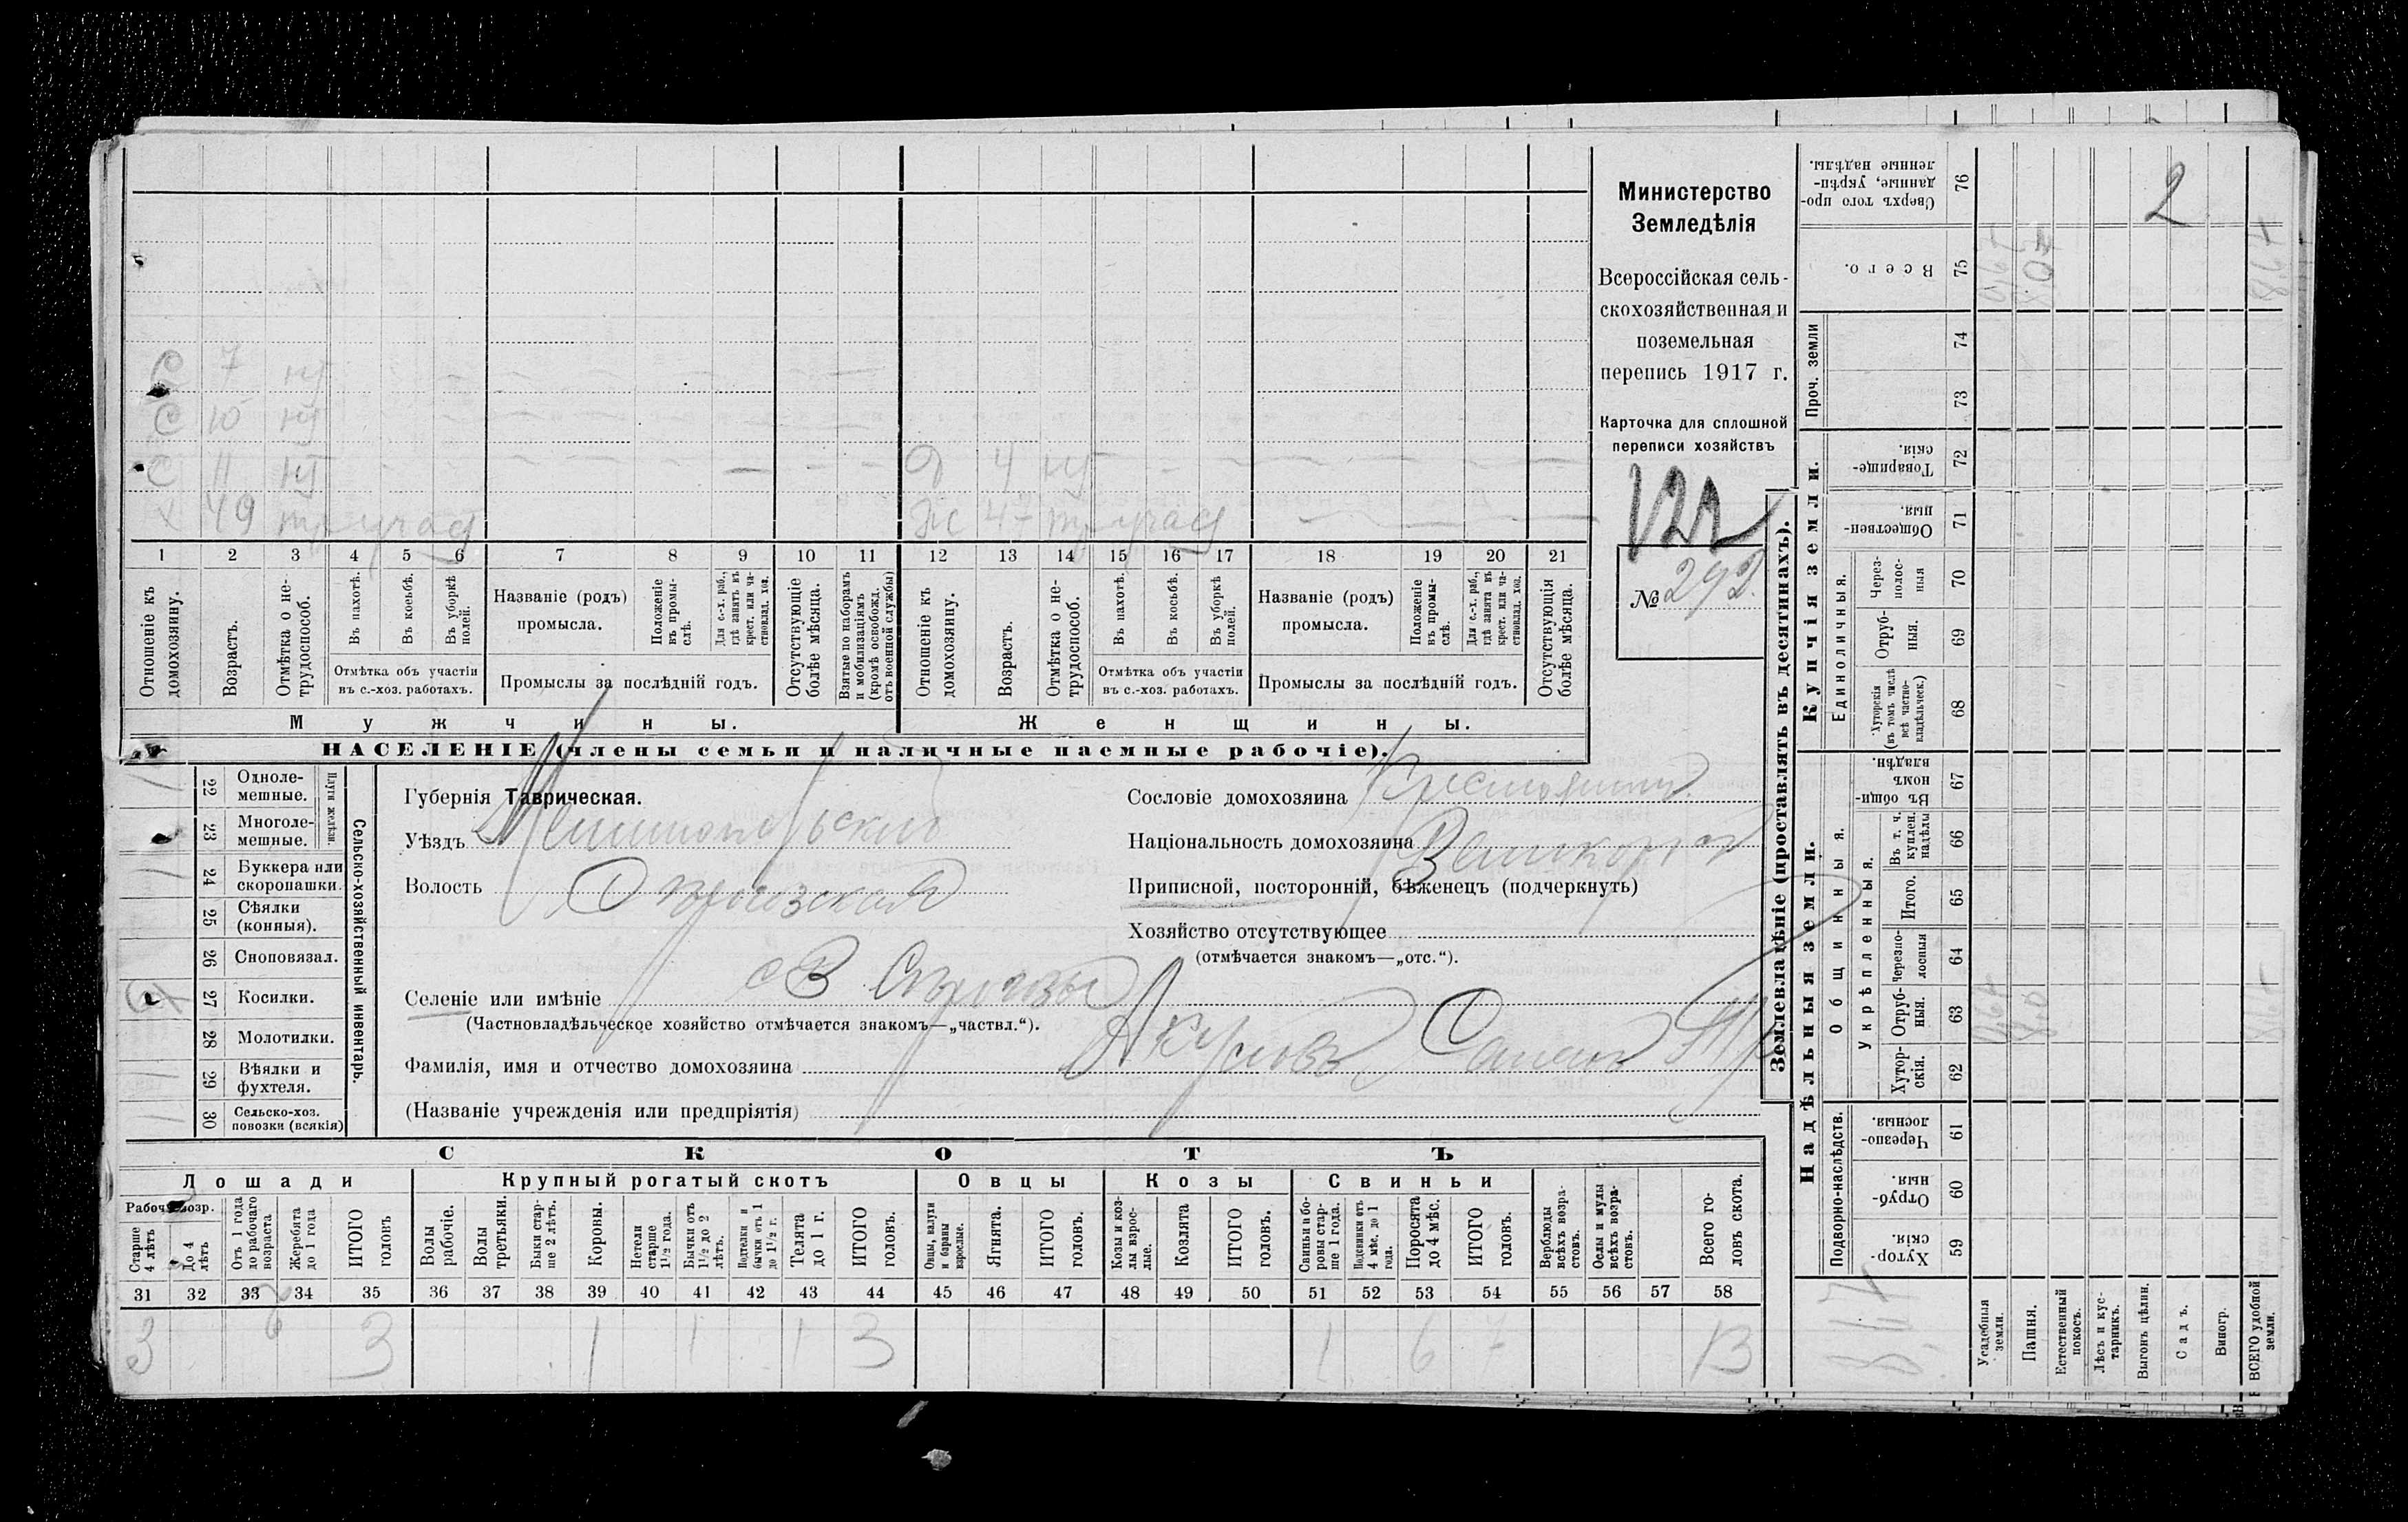 Министерство
Земледѣлія
Всероссійская сель-
скохозяйственная и
поземельная
перепись 1917 г.
Карточка для сплошной
переписи хозяйствъ
122
№ 292.
С 7 нт
С 10 нт
С 11 нт
Д 4 нт
х 49
Ж 47
1 2 3 4 5 6 7 8 9 10 11 12 13 14 15 16 17 18 19 20 21
Отношеніе къ домохозяину.
Возрастъ.
Отмѣтка о не-трудоспособ.
Въ пахотѣ.
Въ косьбѣ.
Въ уборкѣ полей.
Отмѣтка объ участіи въ с.-хоз. работахъ.
Названіе (родъ) промысла.
Положеніе въ промы-слѣ.
Для с.-х. раб., гдѣ занятъ въ крест. или ча-стновлад. хоз.
Промыслы за послѣдній годъ.
Отсутствующіе болѣе мѣсяца.
Взятые по наборамъ и мобилизаціямъ (кромѣ освобожд. отъ военной службы)
Отношеніе къ домохозяину.
Возрастъ.
Отмѣтка о не-трудоспособ.
Въ пахотѣ.
Въ косьбѣ.
Въ уборкѣ полей.
Отмѣтка объ участіи въ с.-хоз. работахъ.
Названіе (родъ) промысла.
Положеніе въ промы-слѣ.
Для с.-х. раб., гдѣ занята въ крест. или ча-стновлад. хоз.
Промыслы за послѣдній годъ.
Отсутствующія болѣе мѣсяца.
Мужчины.
Женщины.
НАСЕЛЕНІЕ (члены семьи и наличные наемные рабочіе).
Сельско-хозяйственный инвентарь.
Плуги желѣзн.
22 Одноле-мешные.
23 Многоле-мешные.
24 Буккера или скоропашки.
25 Сѣялки (конныя).
26 Сноповязал.
27 Косилки.
28 Молотилки.
29 Вѣялки и фухтеля.
30 Сельско-хоз. повозки (всякія)
Губернія Таврическая.
Уѣздъ Мелитопольскій
Волость
Селеніе или имѣніе
(Частновладѣльческое хозяйство отмѣчается знакомъ—„частвл.“).
Фамилія, имя и отчество домохозяина
(Названіе учрежденія или предпріятія)
Сословіе домохозяина Крестьянинъ
Національность домохозяина Великороссъ
Приписной, посторонній, бѣженецъ (подчеркнуть)
Хозяйство отсутствующее
(отмѣчается знакомъ—„отс.“).
СКОТЪ
Лошади
Крупный рогатый скотъ
Овцы
Козы
Свиньи
Рабоч. возр.
Старше 4 лѣтъ
До 4 лѣтъ
Отъ 1 года до рабочаго возраста
Жеребята до 1 года
ИТОГО головъ
Волы рабочіе.
Волы третьяки.
Быки стар-ше 2 лѣтъ.
Коровы.
Нетели старше 1½ года.
Бычки отъ 1½ до 2 лѣтъ.
Подтелки и бычки отъ 1 до 1½ г.
Телята до 1 г.
ИТОГО головъ.
Овцы, валухи и бараны взрослые.
Ягнята.
ИТОГО головъ.
Козы и коз-лы взрос-лые.
Козлята
ИТОГО головъ.
Свиньи и бо-ровы стар-ше 1 года.
Подсвинки отъ 4 мѣс. до 1 года.
Поросята до 4 мѣс.
ИТОГО головъ.
Верблюды всѣхъ возра-стовъ.
Ослы и мулы всѣхъ возра-стовъ.
Всего го-ловъ скота.
31 32 33 34 35 36 37 38 39 40 41 42 43 44 45 46 47 48 49 50 51 52 53 54 55 56 57 58
3 3 1 1 1 3 1 6 7 13
Землевладѣніе (проставлять въ десятинахъ).
Надѣльныя земли.
Купчія земли.
Проч. земли
Подворно-наслѣдств.
Общинныя.
Укрѣпленныя.
Единоличныя.
Сверхъ того про-данные, укрѣп-ленные надѣлы. 76
Всего. 75
74
73
Товарище-скія. 72
Обществен-ныя. 71
Через-полос-ныя 70
Отруб-ныя. 69
Хуторскія (въ томъ числѣ всѣ частно-владѣльческ.) 68
Въ общи-номъ владѣн. 67
Въ т. ч. куплен. надѣлы 66
Итого. 65
Черезпо-лосныя 64
Отруб-ныя. 63
Хутор-скія. 62
Черезпо-лосныя. 61
Отруб-ныя. 60
Хутор-скія. 59
Усадебная земли.
Пашня.
Естественный покосъ.
Лѣсъ и кус-тарникъ.
Выгонъ цѣлин.
Садъ.
Виногр.
ВСЕГО удобной земли.
2